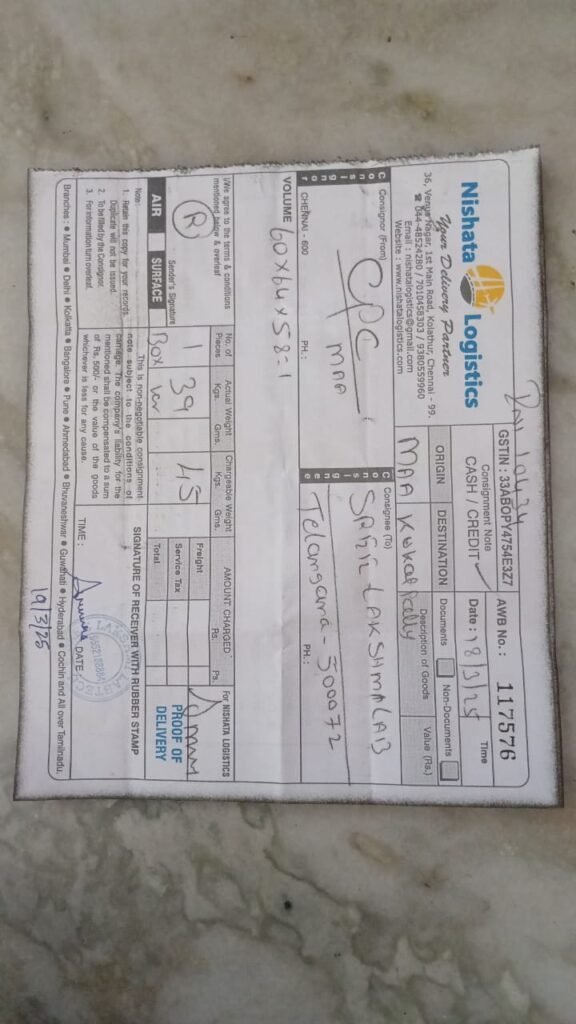 Nishata Logistics
Your Delivery Partner
36, Venus Nagar, 1st Main Road, Kolathur, Chennai - 99.
☎ 044-48524280 / 7010458303 / 9380559960
Email : nishatalogistics@gmail.com
Website : www.nishatalogistics.com
GSTIN : 33ABOPY4754E3Z7
AWB No.: 117576
Consignment Note
CASH / CREDIT
Date : 18/3/25
Time
ORIGIN
DESTINATION
Documents
Non-Documents
Description of Goods
Value (Rs.)
MAA Kukatpally
Consignor
Consignor (From)
CPC
MAA
CHENNAI - 600
PH.:
Consignee
Consignee (To)
LAKSHMI LAB
Telangana - 500072
PH.:
VOLUME 60x64x58=1
I/We agree to the terms & conditions
mentioned below & overleaf
R
Sender's Signature
AIR
SURFACE
No. of
Pieces
Actual Weight
Kgs. Gms.
Chargeable Weight
Kgs. Gms.
AMOUNT CHARGED
Rs. Ps.
1
Box
39
45
Freight
Service Tax
Total
For NISHATA LOGISTICS
PROOF OF
DELIVERY
Note:
1. Retain this copy for your records.
Duplicate will not be issued.
2. To be filled by the Consignor.
3. For information turn overleaf.
This is non-negotiable consignment
note subject to the conditions of
carriage. The company's liability for the
mentioned shall be compensated to a sum
of Rs. 500/- or the value of the goods
whichever is less for any cause.
SIGNATURE OF RECEIVER WITH RUBBER STAMP
TIME :
DATE
19/3/25
Branches : ● Mumbai ● Delhi ● Kolkatta ● Bangalore ● Pune ● Ahmedabad ● Bhuvaneshwar ● Guwahati ● Hyderabad ● Cochin and All over Tamilnadu.